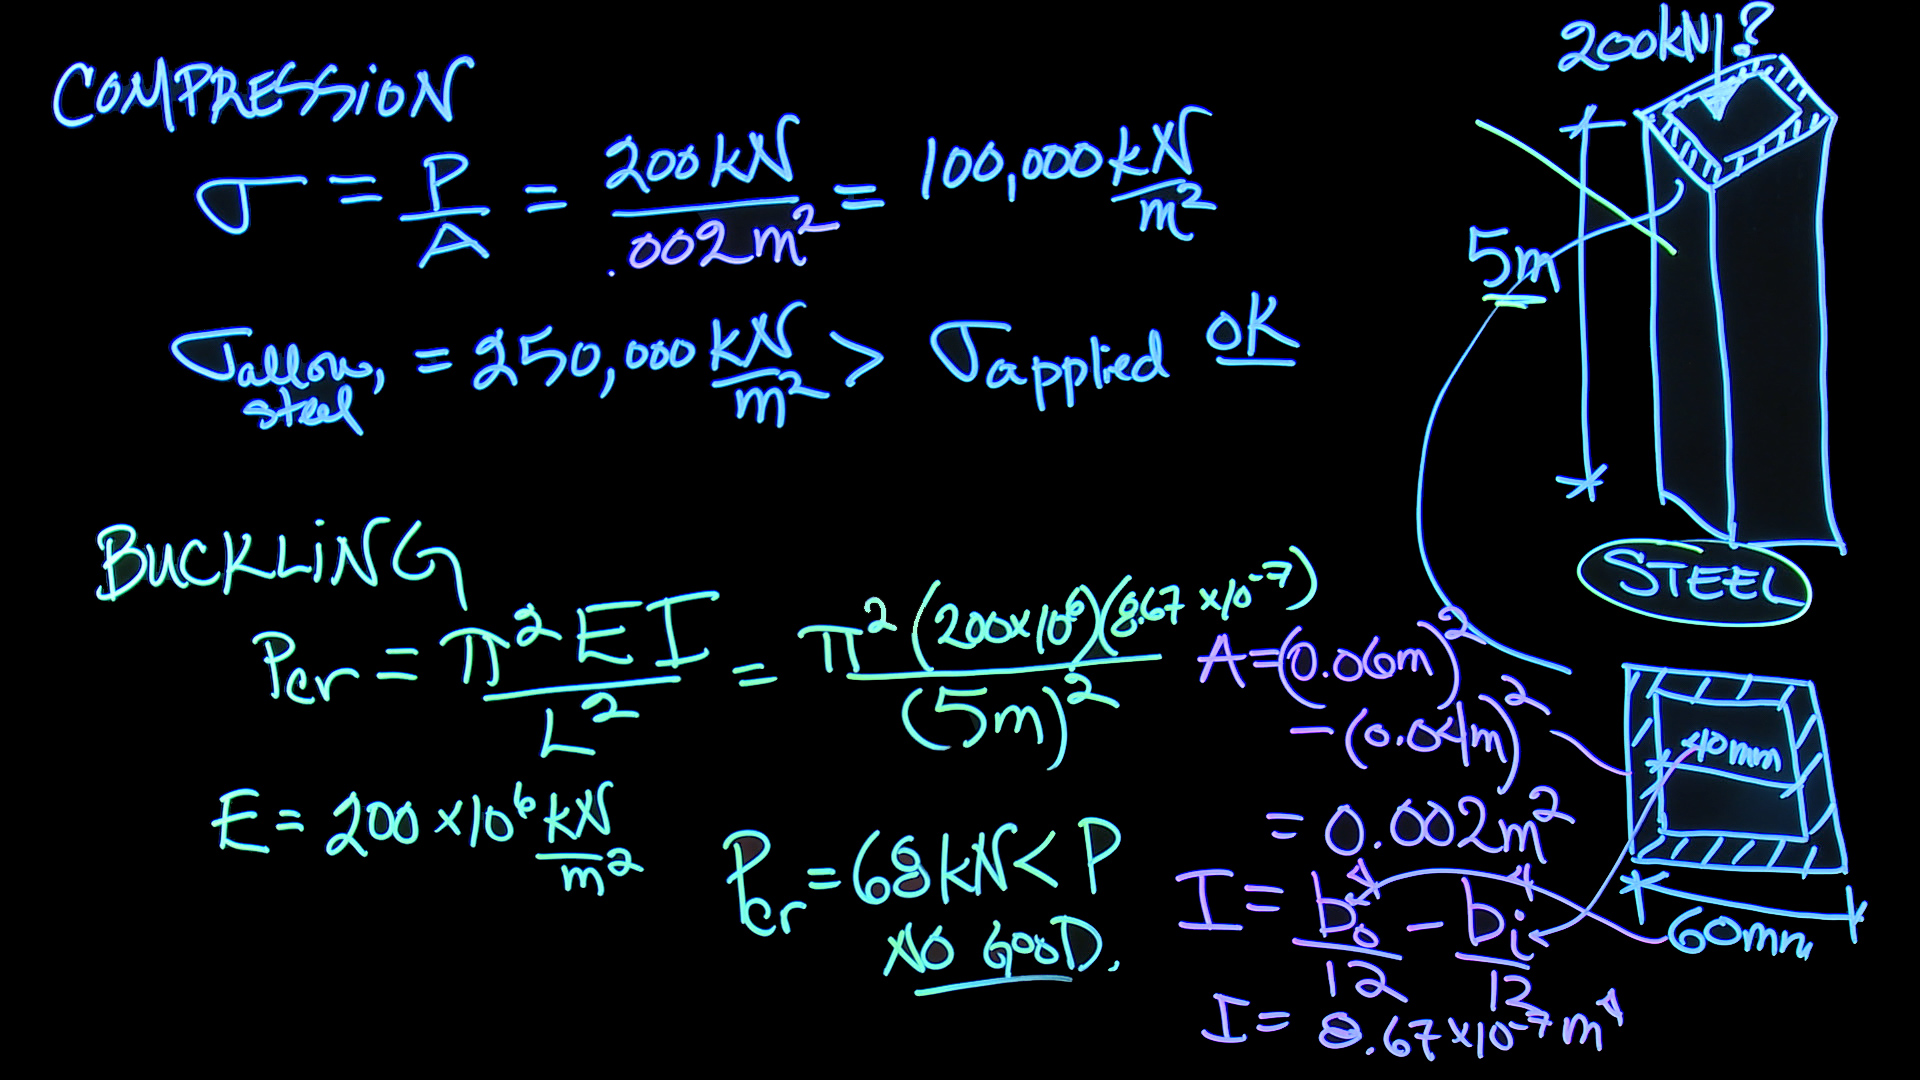 COMPRESSION
σ = P/A = 200kN/.002m² = 100,000 kN/m²
σallow, steel = 250,000 kN/m² > σapplied OK
BUCKLING
Pcr = π²EI/L² = π²(200x10⁶)(8.67 x10⁻⁷)/(5m)²
E = 200 x10⁶ kN/m²
Pcr = 68kN < P
NO GOOD.
200kN ?
5m
STEEL
A = (0.06m)²
- (0.04m)²
= 0.002m²
I = bo⁴/12 - bi⁴/12
I = 8.67 x10⁻⁷ m⁴
40mm
60mm